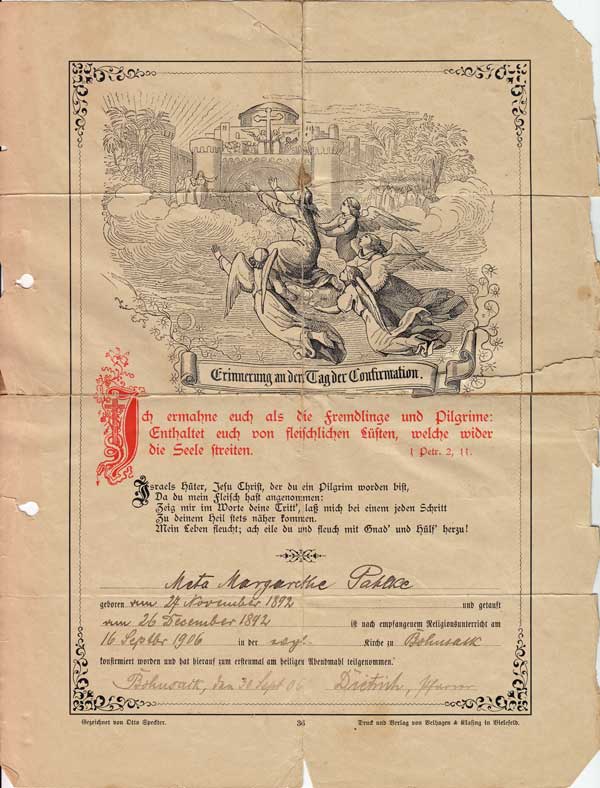 Erinnerung an den Tag der Confirmation.
Ich ermahne euch als die Fremdlinge und Pilgrime:
Enthaltet euch von fleischlichen Lüsten, welche wider
die Seele streiten. 1 Petr. 2, 11.
Israels Hüter, Jesu Christ, der du ein Pilgrim worden bist,
Da du mein Fleisch hast angenommen:
Zeig mir im Worte deine Tritt', laß mich bei einem jeden Schritt
Zu deinem Heil stets näher kommen.
Mein Leben fleucht; ach eile du und fleuch mit Gnad' und Hülf' herzu!
Meta Margarethe Pahlke
geboren am 27 November 1892 und getauft
am 26 Dezember 1892 ist nach empfangenem Religionsunterricht am
16 Septbr 1906 in der evgl. Kirche zu Bohnsack
konfirmiert worden und hat hierauf zu erstenmal am heiligen Abendmahl teilgenommen.
Bohnsack, den 30 Sept 06 Dietrich, Pfarrer
Gezeichnet von Otto Speckter. 36 Druck und Verlag von Velhagen & Klasing in Bielefeld.